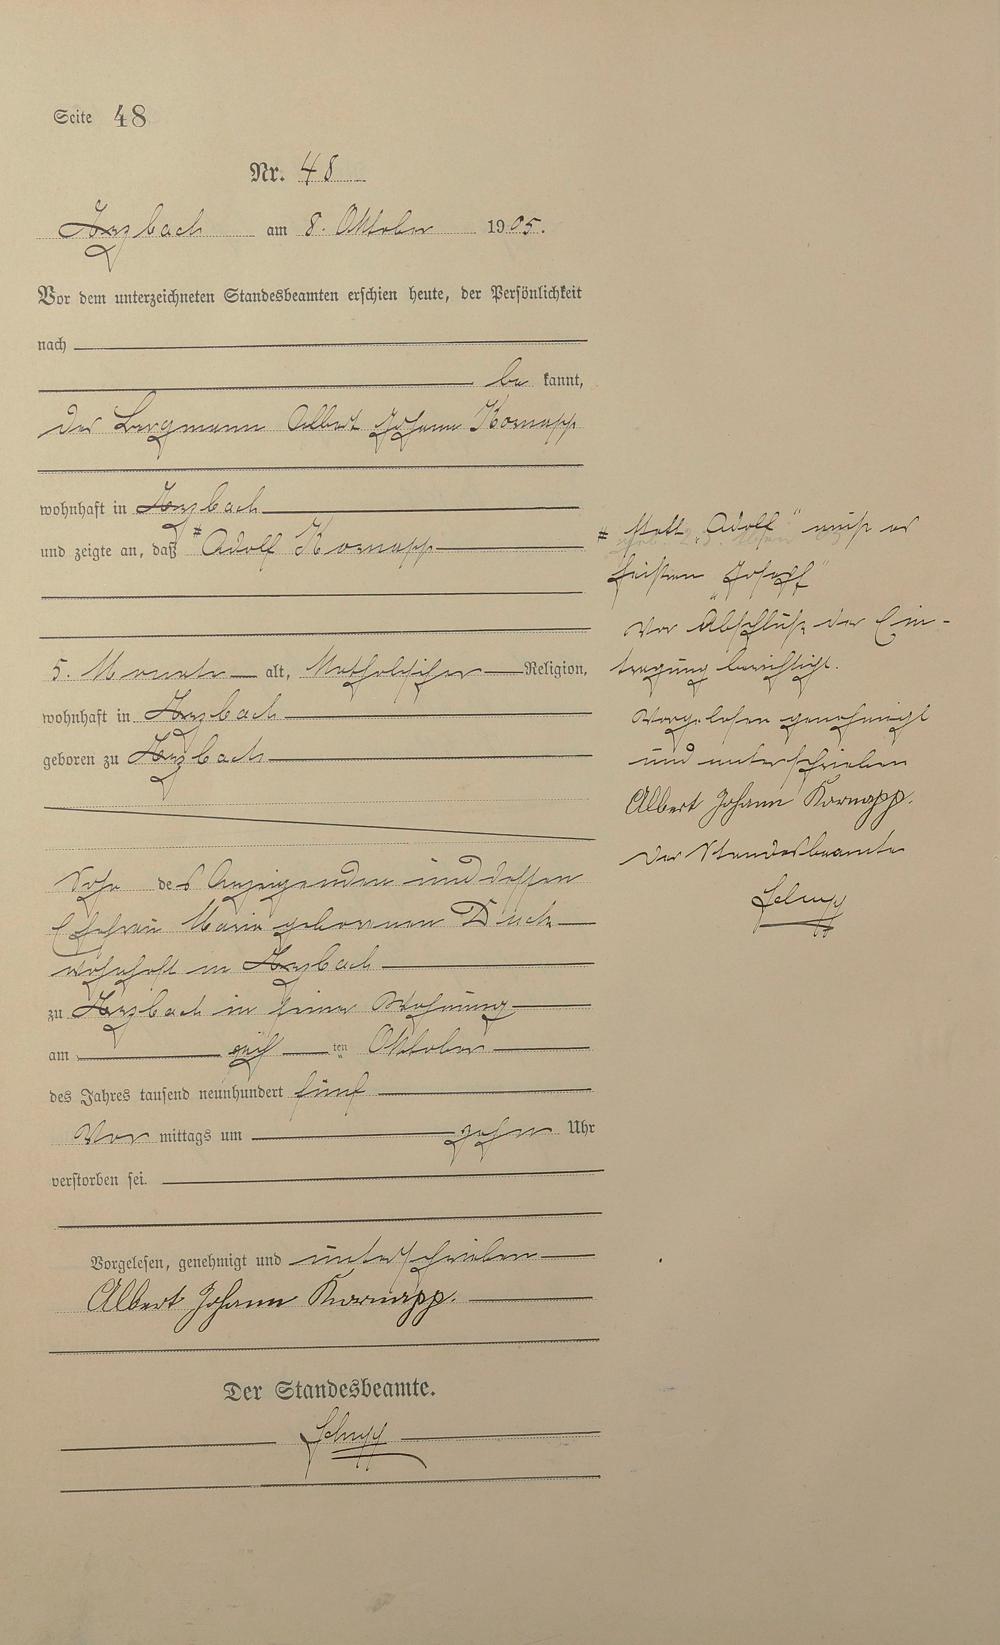 Seite 48
Nr. 48
am 8. Oktober 1905.
Vor dem unterzeichneten Standesbeamten erschien heute, der Persönlichkeit
nach
be kannt,
der Bergmann Albert Johann Kornapp
wohnhaft in
und zeigte an, daß # Adolf Kornapp
5. Monate alt, katholischer Religion,
wohnhaft in
geboren zu
Sohn des Anzeigenden und dessen
Ehefrau Maria geborenen
wohnhaft in
zu in seiner Wohnung
am ten Oktober
des Jahres tausend neunhundert fünf
Vor mittags um zehn Uhr
verstorben sei.
Vorgelesen, genehmigt und unterschrieben
Albert Johann Kornapp.
Der Standesbeamte.
# Statt „Adolf" muß es
heißen „Joseph"
Vor Abschluß der Ein-
tragung berichtigt.
Vorgelesen genehmigt
und unterschrieben
Albert Johann Kornapp.
Der Standesbeamte